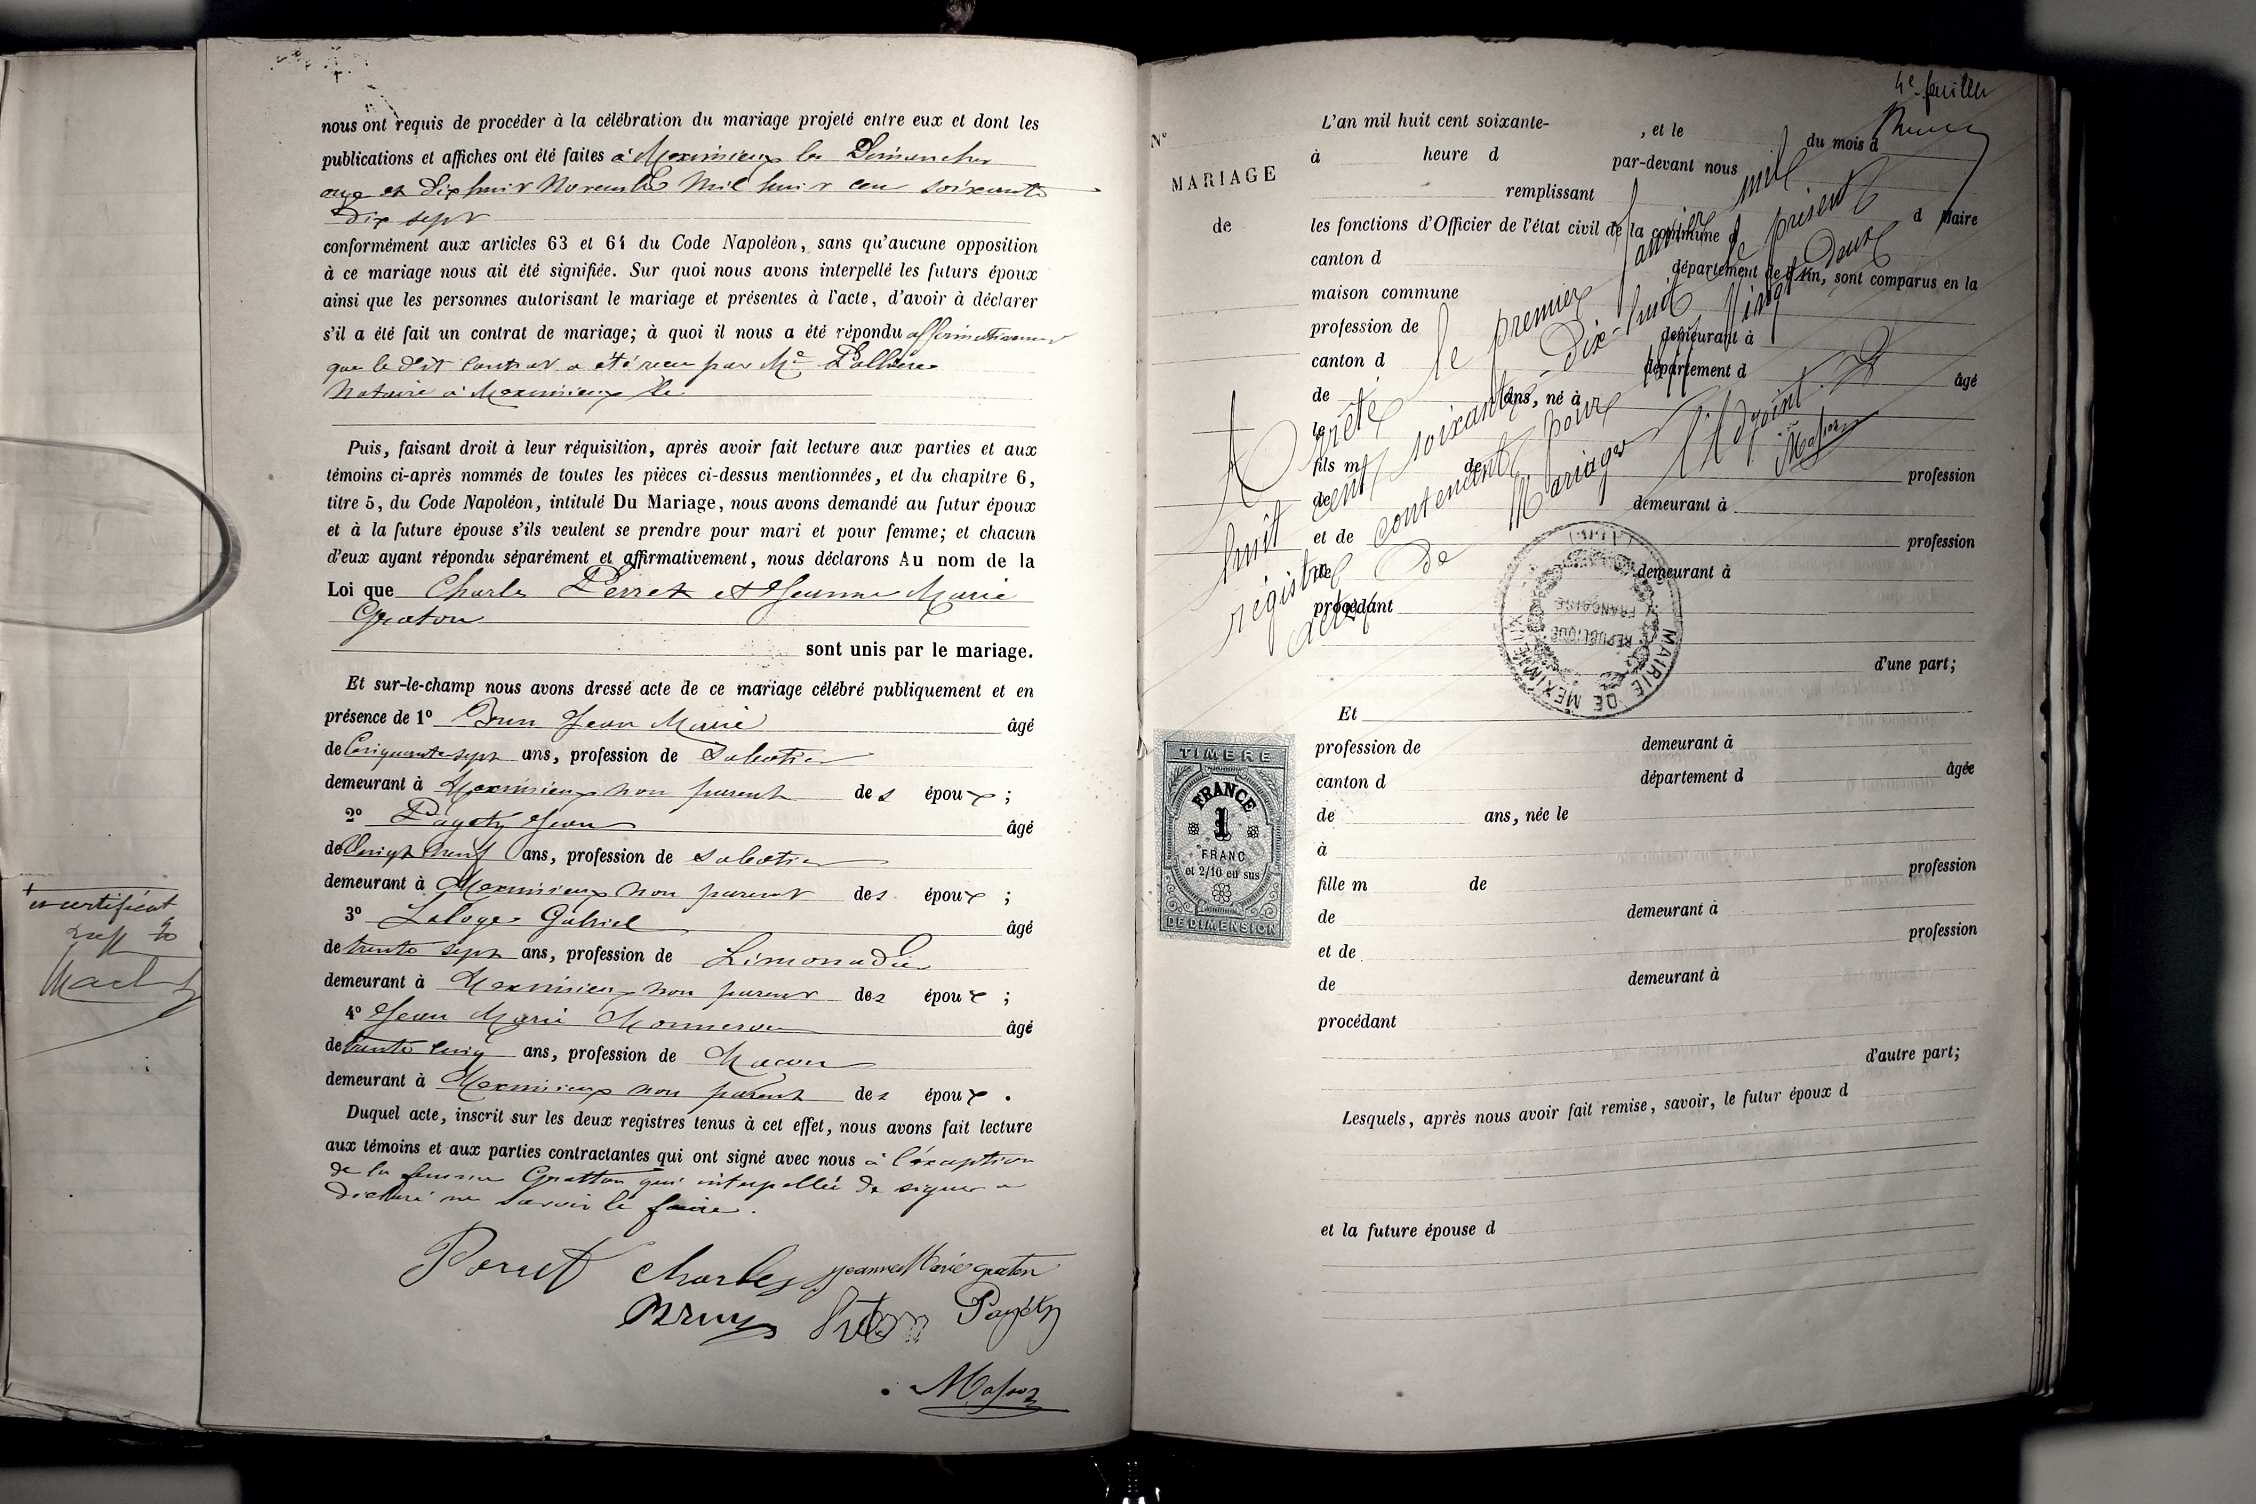 nous ont requis de procéder à la célébration du mariage projeté entre eux et dont les
publications et affiches ont été faites à Meximieux les Dimanches
onze et dix huit Novembre Mil huit cent soixante
dix sept
conformément aux articles 63 et 64 du Code Napoléon, sans qu'aucune opposition
à ce mariage nous ait été signifiée. Sur quoi nous avons interpellé les futurs époux
ainsi que les personnes autorisant le mariage et présentes à l'acte, d'avoir à déclarer
s'il a été fait un contrat de mariage; à quoi il nous a été répondu affirmativement
que le dit contrat a été reçu par Me
Notaire à Meximieux le
Puis, faisant droit à leur réquisition, après avoir fait lecture aux parties et aux
témoins ci-après nommés de toutes les pièces ci-dessus mentionnées, et du chapitre 6,
titre 5, du Code Napoléon, intitulé Du Mariage, nous avons demandé au futur époux
et à la future épouse s'ils veulent se prendre pour mari et pour femme; et chacun
d'eux ayant répondu séparément et affirmativement, nous déclarons Au nom de la
Loi que Charles Perret et Jeanne Marie
Graton
sont unis par le mariage.
Et sur-le-champ nous avons dressé acte de ce mariage célébré publiquement et en
présence de 1° Brun Jean Marie âgé
de Cinquante sept ans, profession de Sabotier
demeurant à Meximieux non parent des époux ;
2° Pagety Jean âgé
de Vingt neuf ans, profession de sabotier
demeurant à Meximieux non parent des époux ;
3° Laloge Gabriel âgé
de trente sept ans, profession de Limonadier
demeurant à Meximieux non parent des époux ;
4° Jean Marie âgé
de trente cinq ans, profession de Macon
demeurant à Meximieux non parent des époux .
Duquel acte, inscrit sur les deux registres tenus à cet effet, nous avons fait lecture
aux témoins et aux parties contractantes qui ont signé avec nous à l'éxception
de la femme Gratton qui interpellée de signer a
déclaré ne savoir le faire.
Perret Charles jeanne Marie graton
Brun Pagety
Masson
certificat
4e feuillet
N°
MARIAGE
de
L'an mil huit cent soixante- , et le du mois d
à heure d par-devant nous
remplissant
les fonctions d'Officier de l'état civil de la commune d d Maire
canton d département de l'Ain, sont comparus en la
maison commune
profession de demeurant à
canton d département d
de ans, né à âgé
le
fils m de
de profession
demeurant à
et de profession
de demeurant à
procédant
d'une part;
Arrêté le premier Janvier mil
huit cent soixante-dix-huit le présent
registre contenant pour Vingt deux
actes de Mariages
L'Adjoint
Masson
MAIRIE DE MEXIMIEUX
RÉPUBLIQUE
FRANÇAISE
TIMBRE
FRANCE
1
FRANC
et 2/10 en sus
DE DIMENSION
Et
profession de demeurant à
canton d département d âgée
de ans, née le
à
fille m de profession
de demeurant à
et de profession
de demeurant à
procédant
d'autre part;
Lesquels, après nous avoir fait remise, savoir, le futur époux d
et la future épouse d